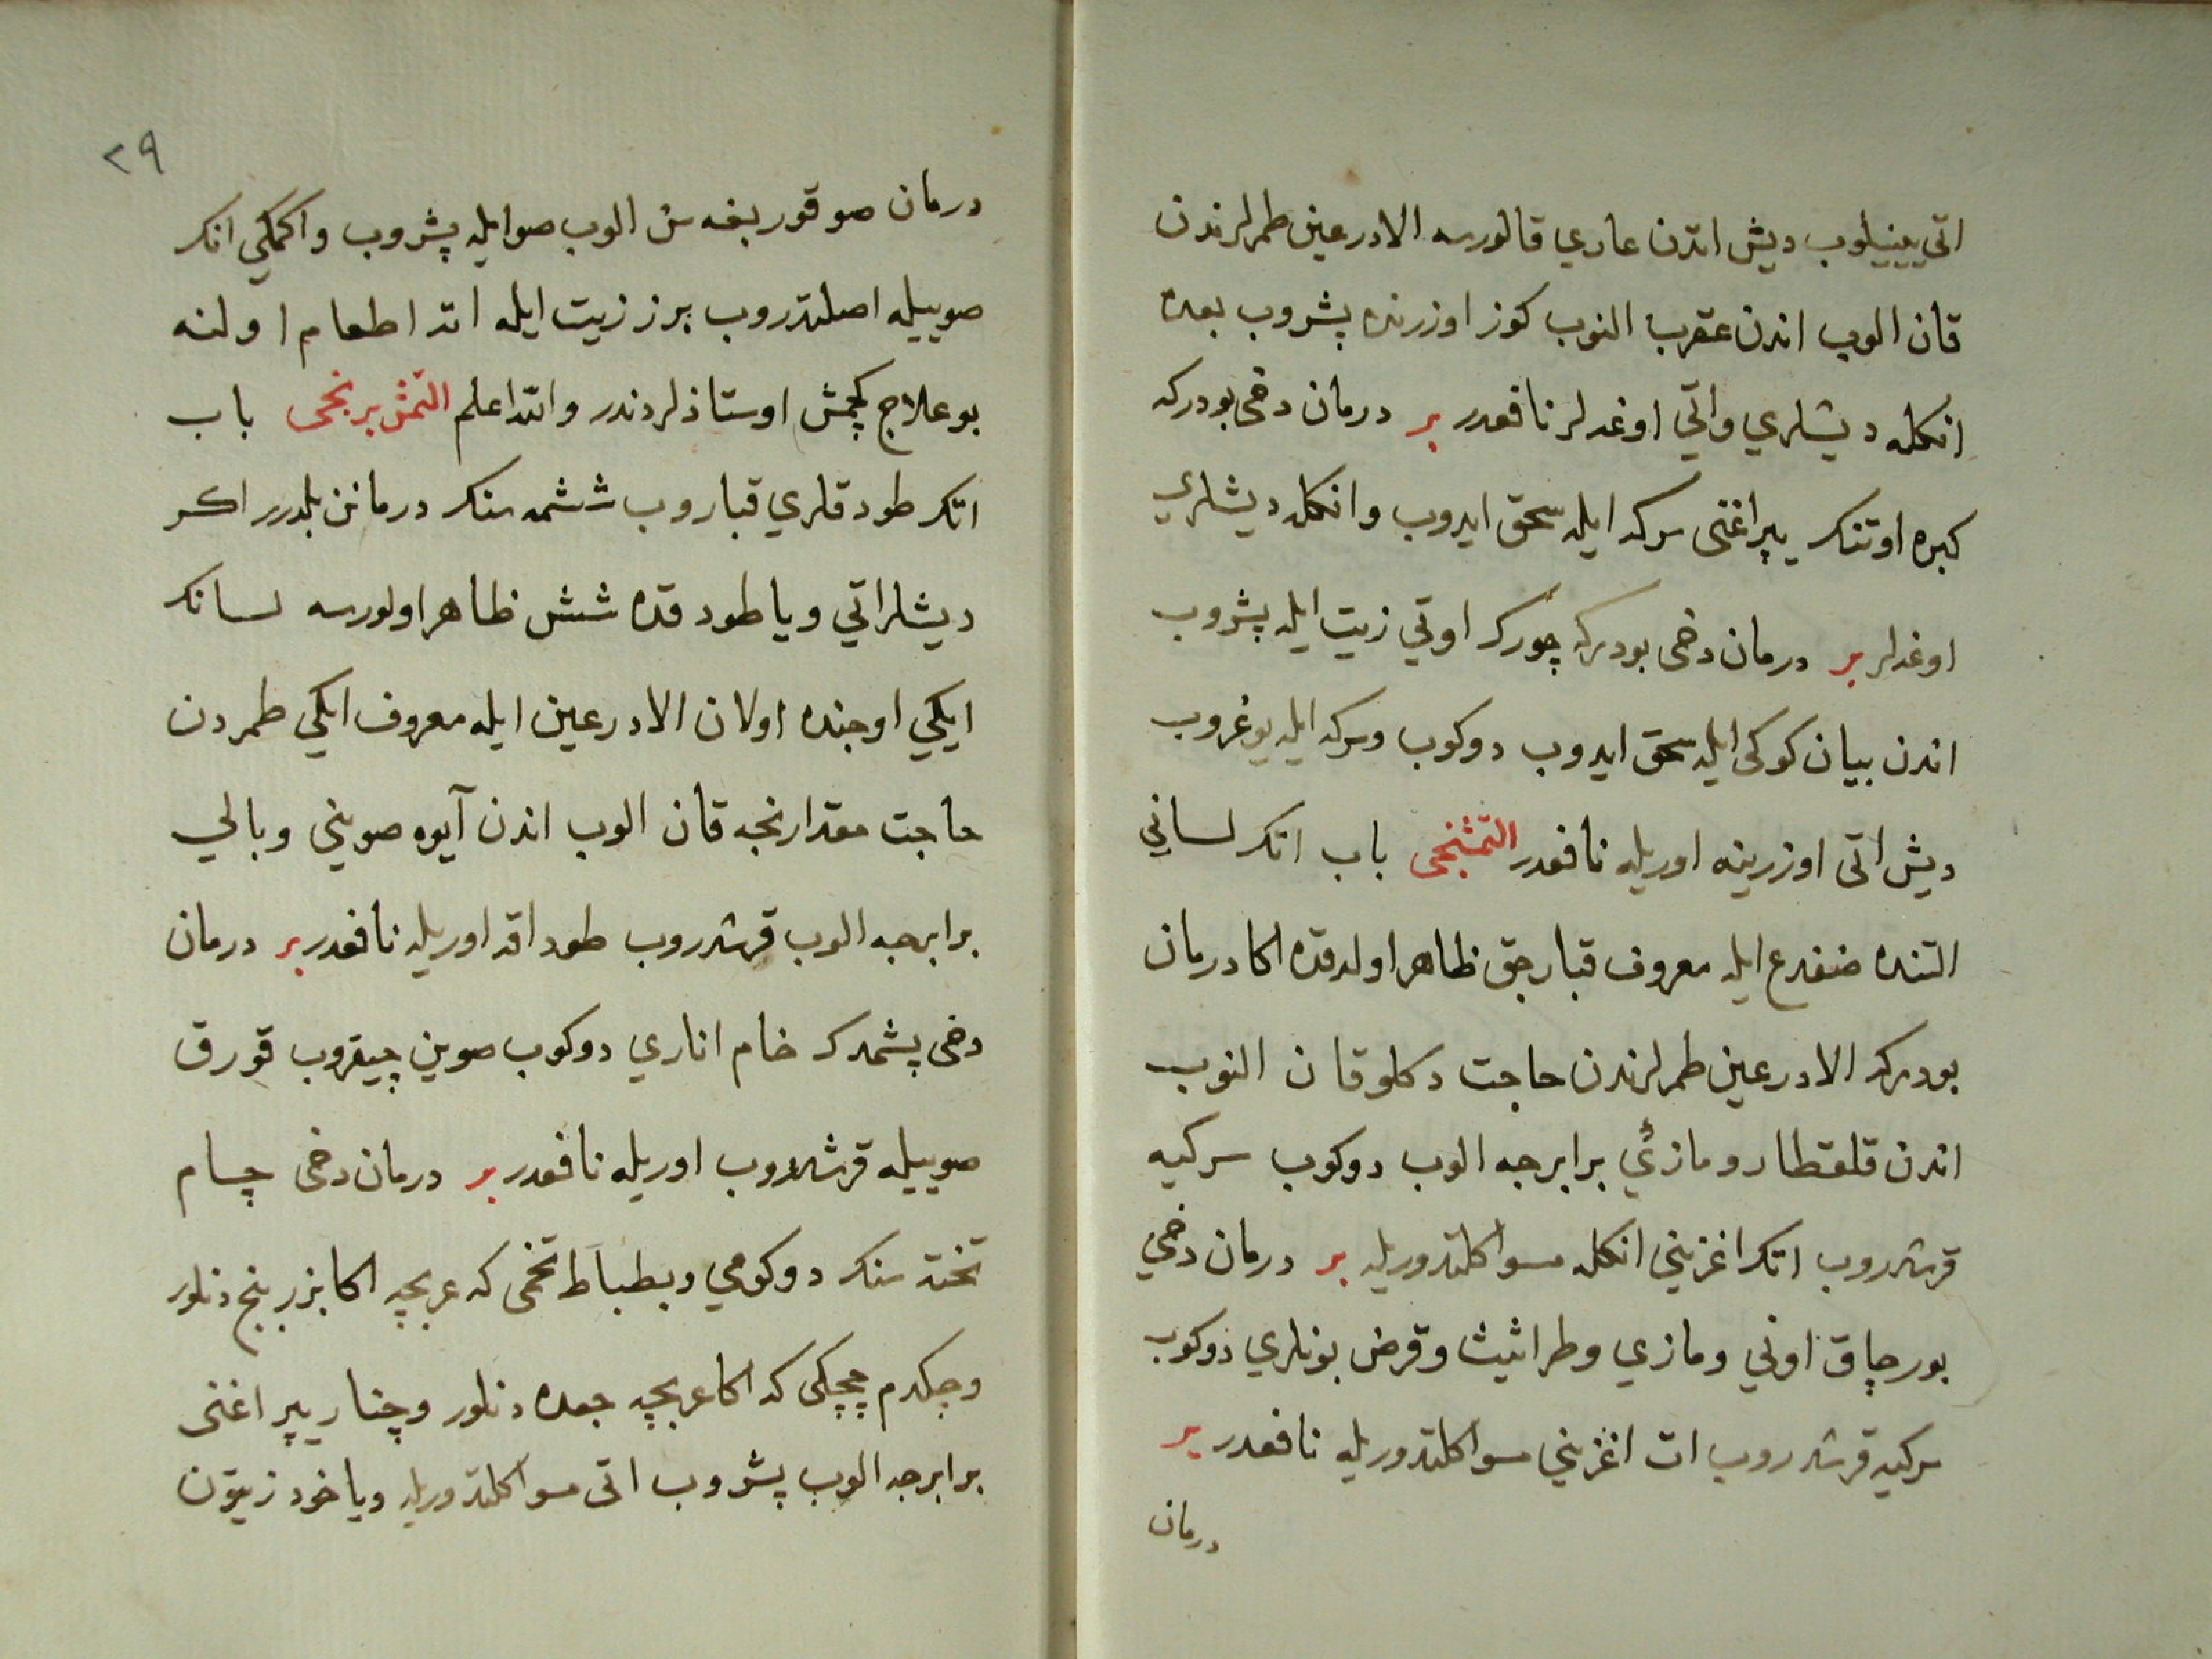 اتي يينيلوب ديش اتدن عاري قالورسه الادرعين طمرلرندن
قان الوب اندن عقرب النوب كوز اوزرنده پشروب بعده
انكله ديشلري واتي اوغدلر نافعدر بر درمان دخى بودركه
كبره اوتنك يپراغنى سركه ايله سحق ايدوب وانكله ديشلري
اوغدلر بر درمان دخى بودركه چورك اوتي زيت ايله پشروب
اندن بيان كوكى ايله سحق ايدوب دوكوب وسركه ايله يوغروب
ديش اتى اوزرينه اوريله نافعدر التمشنجى باب اتك لساني
التنده ضفدع ايله معروف قبارجق ظاهر اولدقده اكا درمان
بودركه الادرعين طمرلرندن حاجت دكلو قان النوب
اندن قلقطار ومازئي برابرجه الوب دوكوب سركيه
قرشدروب اتك اغزيني انكله مسواكلتدوريله بر درمان دخي
بورچاق اوني ومازي وطراثيث وقرض بونلري دوكوب
سركيه قرشدروب ات اغزيني مسواكلتدوريله نافعدر بر
درمان
٢٩
درمان صو قوربغه سن الوب صو ايله پشروب واكمكي انك
صوييله اصلتدروب برز زيت ايله اته اطعام اولنه
بو علاج كچمش اوستاذلردندر والله اعلم التمش برنجى باب
اتك طودقلري قباروب ششمه سنك درمانن بلدرر اكر
ديشلراتي ويا طودقده شش ظاهر اولورسه لسانك
ايكي اوجنده اولان الادرعين ايله معروف ايكي طمردن
حاجت مقدارنجه قان الوب اندن آيوه صويني وبالي
برابرجه الوب قرشدروب طوداقه اوريله نافعدر بر درمان
دخى پشمدك خام اناري دوكوب صوين چيقروب قورق
صوييله قرشدروب اوريله نافعدر بر درمان دخى چام
تخته سنك دوكومي وبطباط تخمى كه عربجه اكا بزر بنج دنلور
وچكدم چچكى كه اكا عربجه جعده دنلور وچنار يپراغنى
برابرجه الوب پشروب اتى مسواكلتدوريله وياخود زيتون